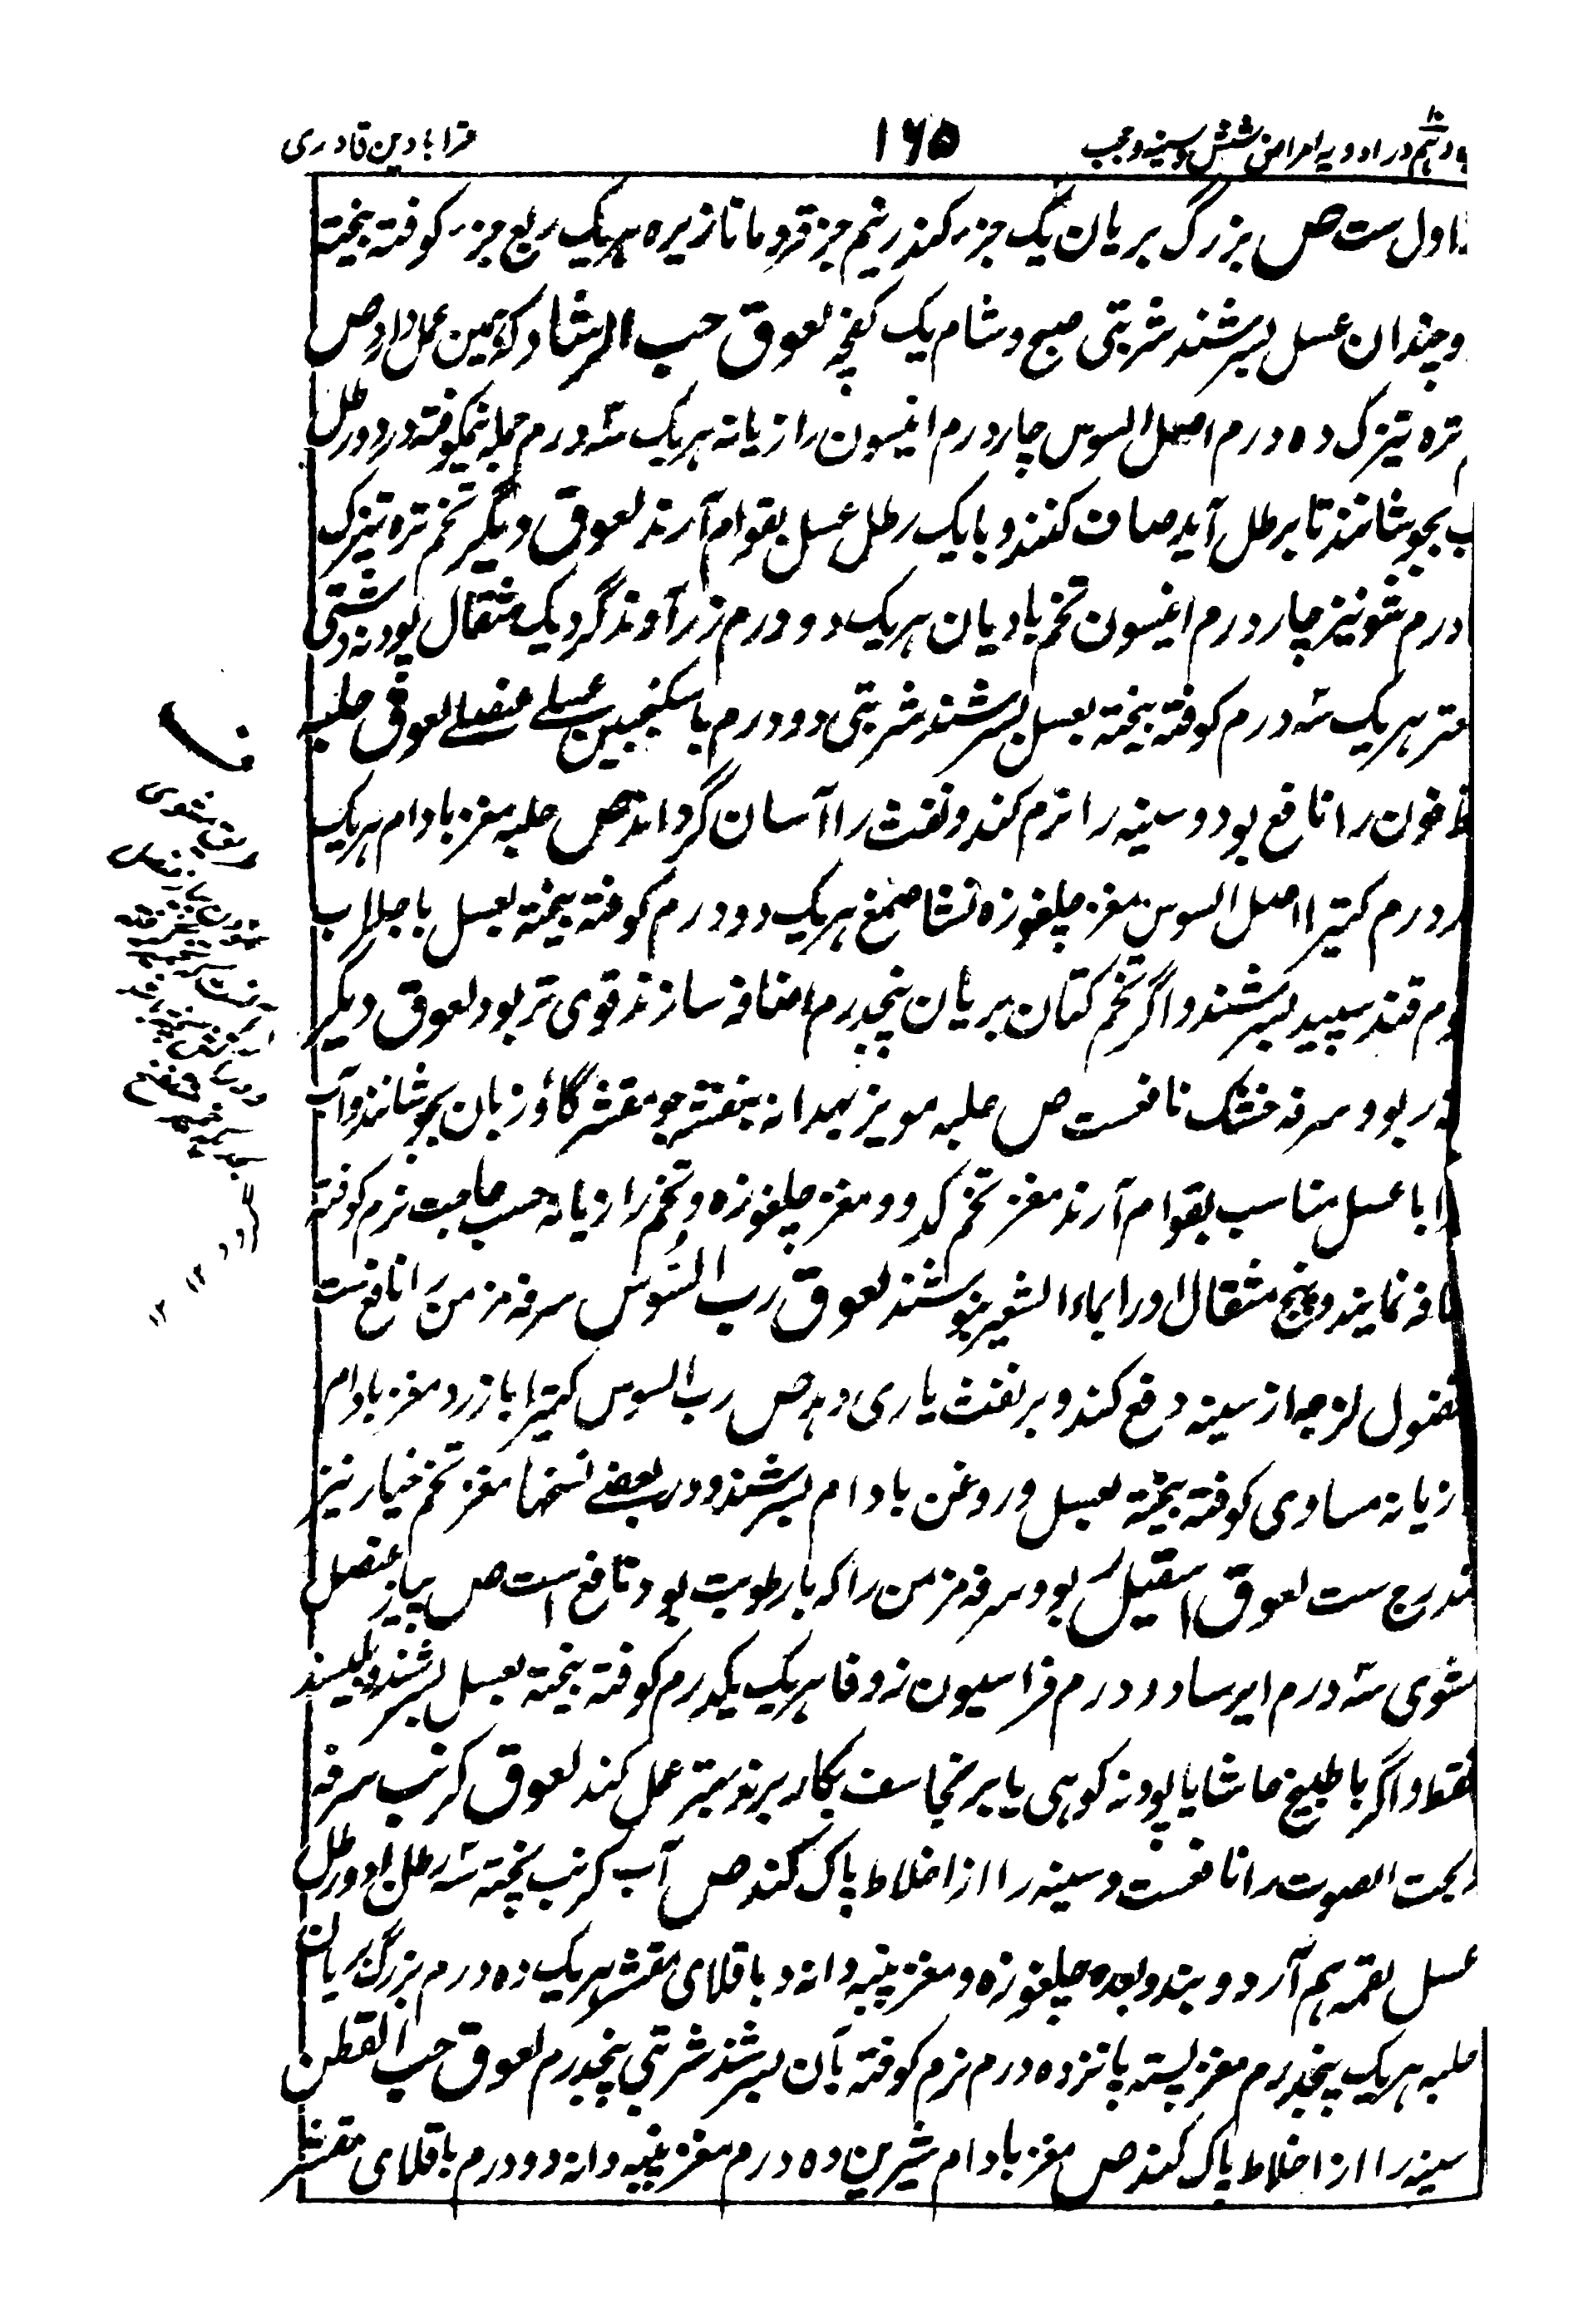 دہم در ادویہ امراض شش و سینہ و حجب ۱۶۵ قرابادین قادری
اول ست ص بزرگ بریان یک جزء کندر نیم جزء قردمانا زیرہ ہریک ربع جزء کوفتہ بیختہ
دو چندان عسل بسرشند شربتی صبح و شام یک کفچہ لعوق حب الرشاد کہ ہمین عمل دارد ص
ترہ تیزک دہ درم اصل السوس چار درم انیسون رازیانہ ہریک سہ درم جملہ نیمکوفتہ در دو رطل
بجوشانند تا بر طل آید صاف کنند و با یک رطل عسل بقوام آرند لعوق دیگر تخم ترہ تیزک
درم شونیز چار درم انیسون تخم بادیان ہریک دو درم زرآوند گرد یک مثقال پودنہ دشتی
ہریک سہ درم کوفتہ بیختہ بعسل بسرشند شربتی دو درم با سکنجبین عسلے عنصلے لعوق حلبہ
خون را نافع بود و سینہ را نرم کند و نفث را آسان گرداند ص حلبہ مغز بادام ہریک
درم کتیرا اصل السوس مغز چلغوزہ نشا صمغ ہریک دو درم کوفتہ بیختہ بعسل با جلاب
قند سپید بسرشند و اگر تخم کتان بریان پنجدرم اضافہ سازند قوی تر بود لعوق دیگر
ربو و سرفہ خشک نافعست ص حلبہ مویز بہدانہ بنفشہ جو مقشر گاؤزبان بجوشانند و آب
با عسل مناسب بقوام آرند مغز تخم کدو و مغز چلغوزہ و تخم رازیانہ حسب حاجت نرم کوفتہ
نمایند و پنج مثقال اورا بماء الشعیر بنوشند لعوق رب السوس سرفہ مزمن را نافع ست
فضول لزجہ از سینہ دفع کند و بر نفث یاری دہد ص رب السوس کتیرا بازرد مغز بادام
رازیانہ مساوی کوفتہ بیختہ بعسل و روغن بادام بسرشند و در بعضے نسخہا مغز تخم خیار نیز
مندرج ست لعوق اسقیل ربو و سرفہ مزمن را کہ با رطوبت بود نافع است ص پیاز عنصل
مشوی سہ درم ایرسا دو درم فراسیون زوفا ہریک یکدرم کوفتہ بیختہ بعسل بسرشند و بلیسند
فقط و اگر با طبیخ حاشا یا پودنہ کوہی یا برنجاسف بکار برند بہتر عمل کند لعوق کرنب سرفہ
و بحت الصوت را نافعست و سینہ را از اخلاط پاک کند ص آب کرنب پختہ سہ رطل دو رطل
عسل بقمہ بہم آرد و بعدہ چلغوزہ و مغز پنبہ دانہ و باقلای مقشر ہریک دہ درم بزرگ بریان
حلبہ ہریک پنجدرم مغز پستہ پانزدہ درم نرم کوفتہ بآن بسرشند شربتی پنجدرم لعوق حب القطن
سینہ را از اخلاط پاک کند ص مغز بادام شیرین دہ درم مغز پنبہ دانہ دو درم باقلای مقشر